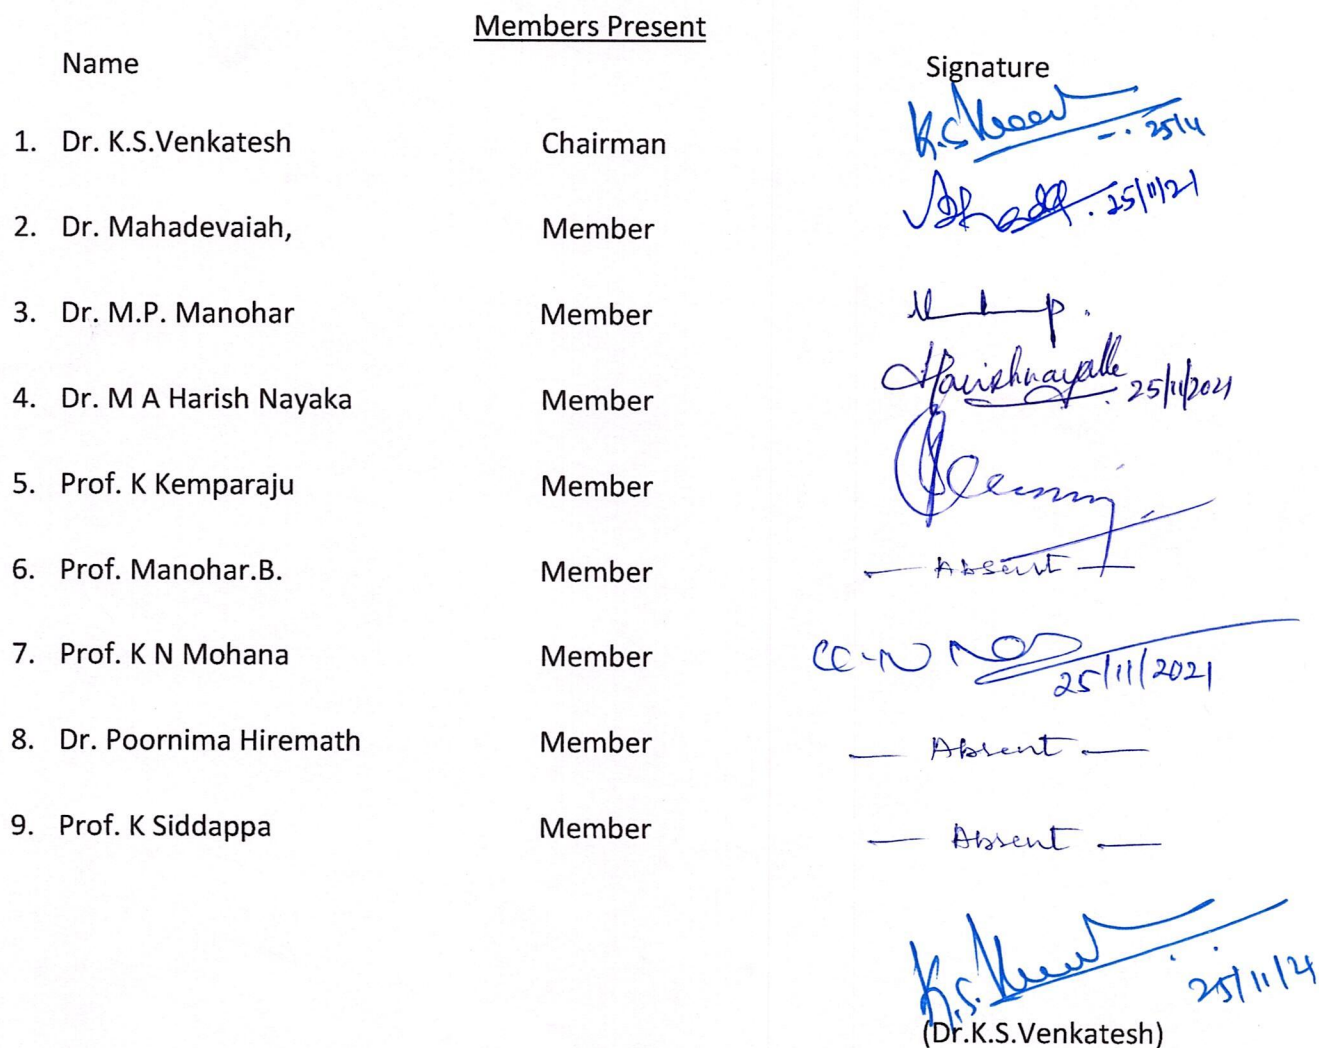 Members Present
Name Signature
1. Dr. K.S.Venkatesh Chairman K.S 25/4
2. Dr. Mahadevaiah, Member 25/11/21
3. Dr. M.P. Manohar Member
4. Dr. M A Harish Nayaka Member Harishnayaka 25/11/2021
5. Prof. K Kemparaju Member
6. Prof. Manohar.B. Member — Absent —
7. Prof. K N Mohana Member 25/11/2021
8. Dr. Poornima Hiremath Member — Absent —
9. Prof. K Siddappa Member — Absent —
K.S. 25/11/21
(Dr.K.S.Venkatesh)